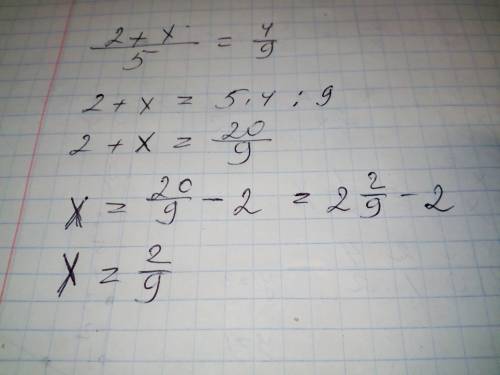 (2 + x)/5 = 4/9
2 + x = 5 · 4 : 9
2 + x = 20/9
x = 20/9 - 2 = 2 2/9 - 2
x = 2/9